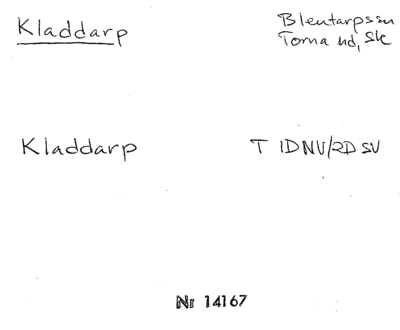 Kladdarp
Blentarpssn
Torna hd, Sk
Kladdarp T 1D NV/2D SV
Nr 14167